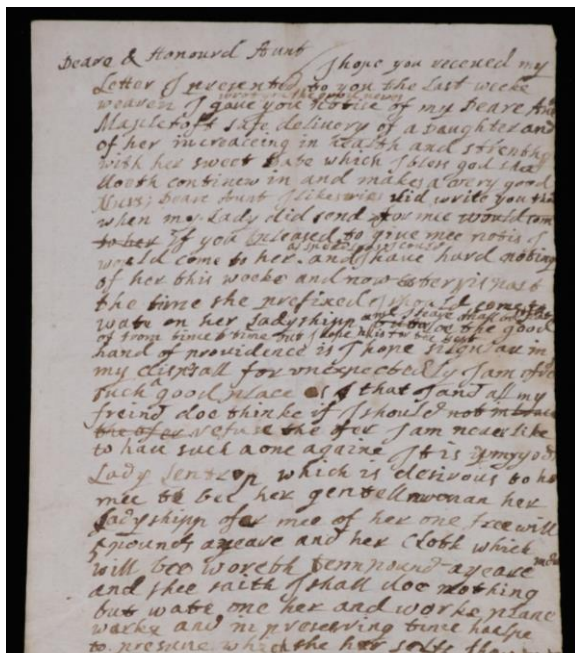 Deare & Honourd Aunt I hope you receved my
Letter I presented to you the Last weeke
wearein I gave you notice of my Deare Aunt
Mapletoft safe delivery of a Daughter and
of her increaceing in health and strenth
with her sweet Babe which I bless god shee
dooth continew in and makes a very good
Nurs; Deare Aunt I likewise did write you that
when my Lady did send for mee would com
to her If you pleased to give mee notis I
would come to her. and I have hard nothing
of her this weeke and now is past
the time she prefixed I should come to
wate on her Ladyshipp and I feare
of from time to time but I hope it is for the best
hand of providence is I hope in
my dispsall for unexpectedly I am ofred
such a good place as that I and all my
freind doe thinke if I should not
the ofer refuse the ofer I am never like
to hau such a one againe It is
Lady which is desirous to
mee to bee her gentellwoman her
Ladyshipp ofer mee of her one free will
5 pounds a yeare and her Cloth which
will bee woreth tenn pound a yeare
and shee saith I shall doe nothing
but wate one her and worke plane
worke and in preserving time healpe
to preserve which she her selfe